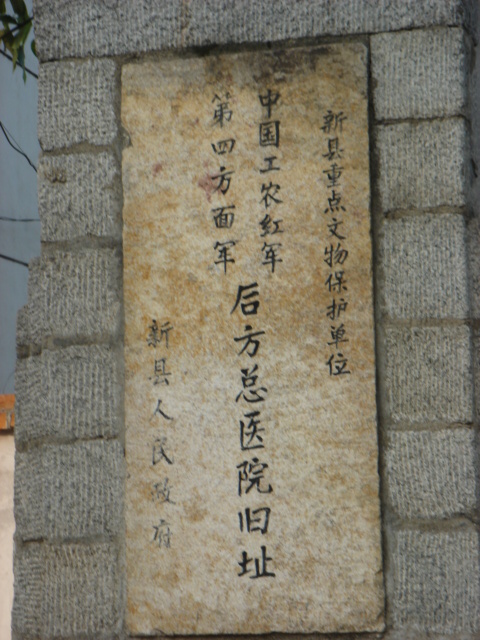 新县重点文物保护单位
中国工农红军
第四方面军
后方总医院旧址
新县人民政府